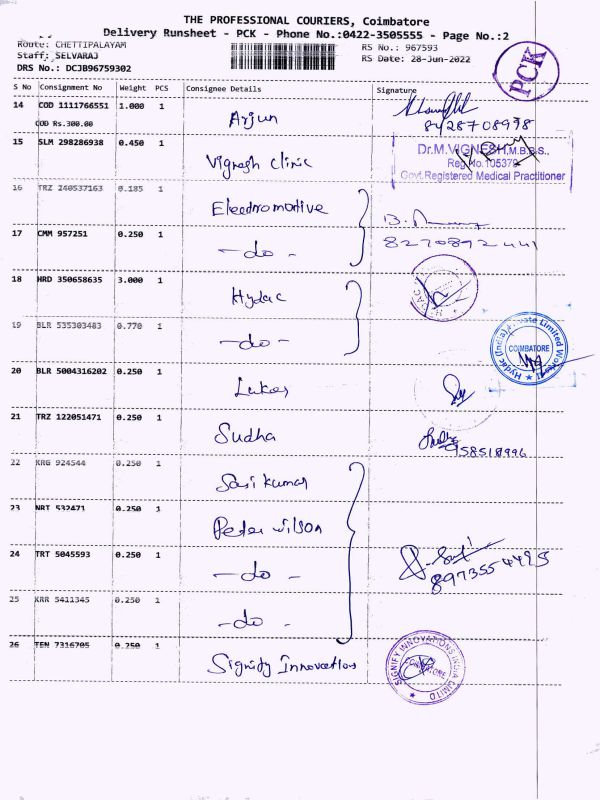 THE PROFESSIONAL COURIERS, Coimbatore
Delivery Runsheet - PCK - Phone No.:0422-3505555 - Page No.:2
Route: CHETTIPALAYAM RS No.: 967593
Staff: SELVARAJ RS Date: 28-Jun-2022
DRS No.: DCJB96759302
PCK
S No Consignment No Weight PCS Consignee Details Signature
14 COD 1111766551 1.000 1 Arjun
COD Rs.300.00 8428708998
15 SLM 298286938 0.450 1 Vignesh Clinic
Dr.M.VIGNESH,M.B.B.S.,
Reg.No.105379
Govt.Registered Medical Practitioner
16 TRZ 240537163 0.185 1 Electromotive
17 CMM 957251 0.250 1 -do- 8270892441
18 HRD 350658635 3.000 1 Hydac
19 BLR 535303483 0.770 1 -do-
Hydac (India) Private Limited
COIMBATORE
20 BLR 5004316202 0.250 1 Lukas
21 TRZ 122051471 0.250 1 Sudha
22 KRG 924544 0.250 1 Sasikumar
23 NRT 532471 0.250 1 Peter wilson
24 TRT 5045593 0.250 1 -do- 8973554495
25 KRR 5411345 0.250 1 -do-
26 TEN 7316705 0.250 1 Signify Innovations
SIGNIFY INNOVATIONS INDIA LIMITD
COIMBATORE